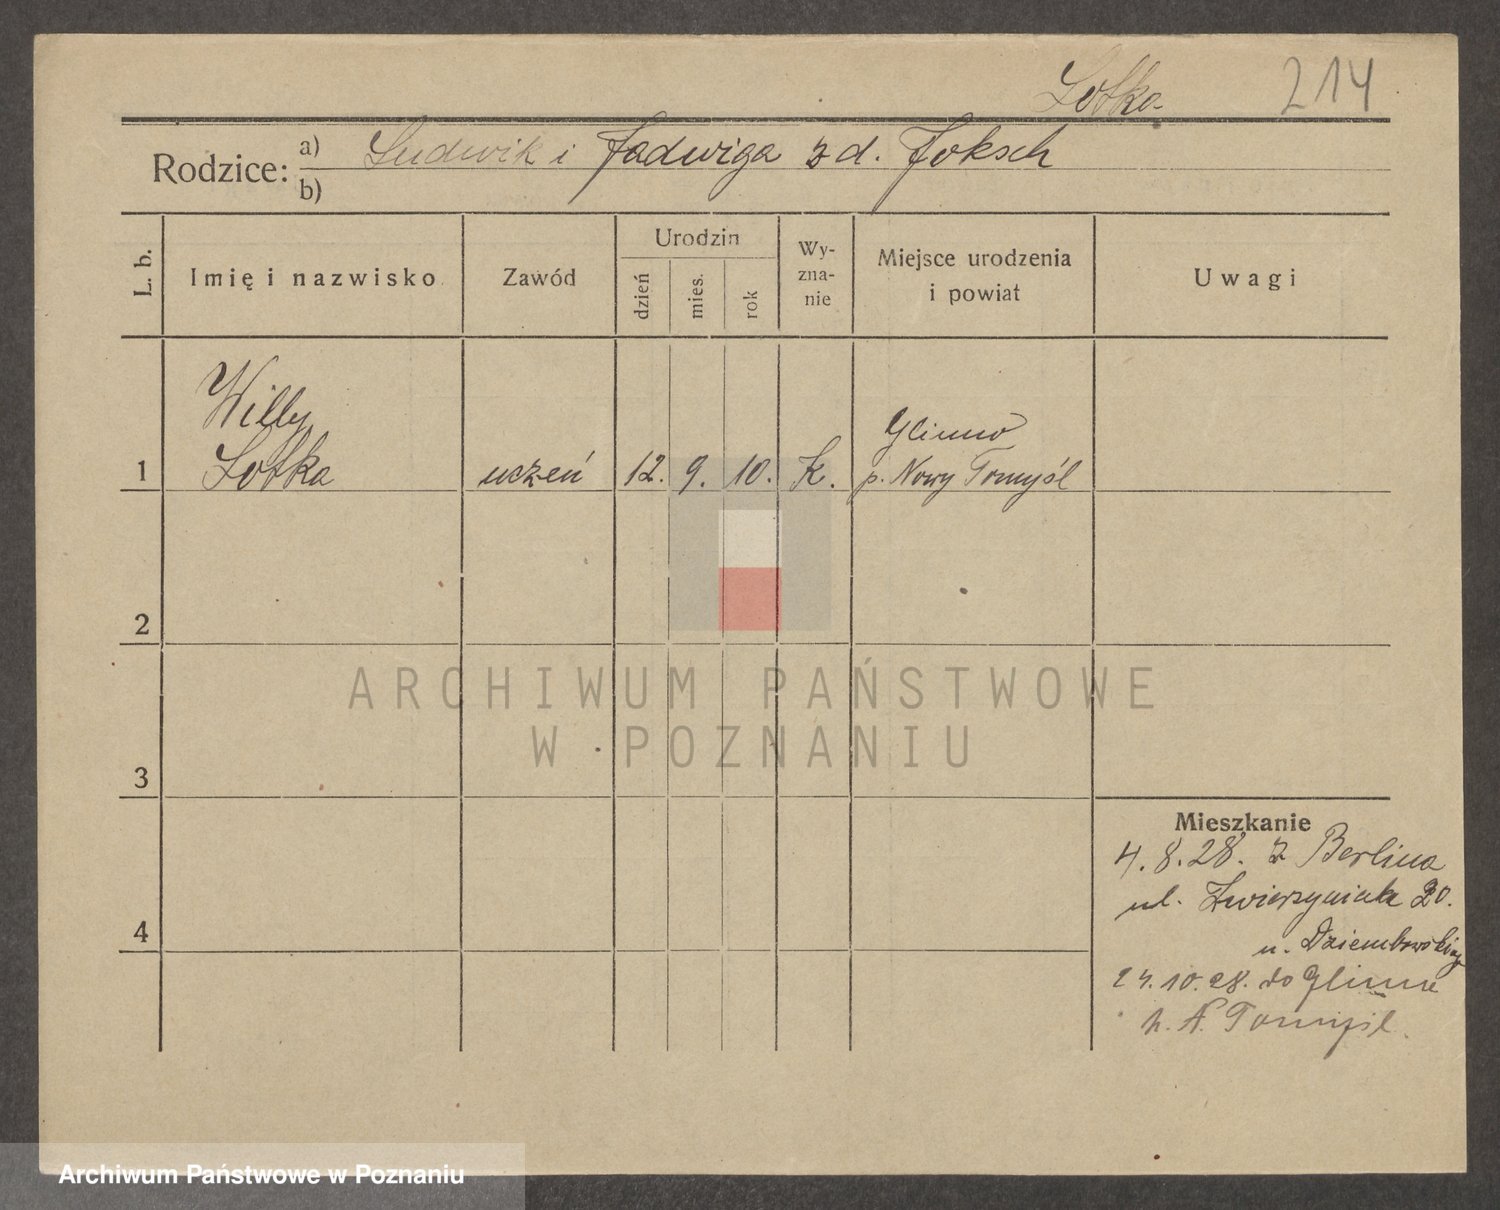 Lotka
214
Rodzice: a) Ludwik i Jadwiga z d. Joksch
b)
L. b.
Imię i nazwisko
Zawód
Urodzin
dzień
mies.
rok
Wy-
zna-
nie
Miejsce urodzenia
i powiat
Uwagi
Willy
Lotka
1
uczeń
12. 9. 10.
K.
Glinno
p. Nowy Tomyśl
2
3
4
Mieszkanie
4.8.28. z Berlina
ul. Zwierzyniecka 20.
u. Dziembowskiej
24.10.28. do Glinna
p. N. Tomyśl.
ARCHIWUM PAŃSTWOWE
W POZNANIU
Archiwum Państwowe w Poznaniu